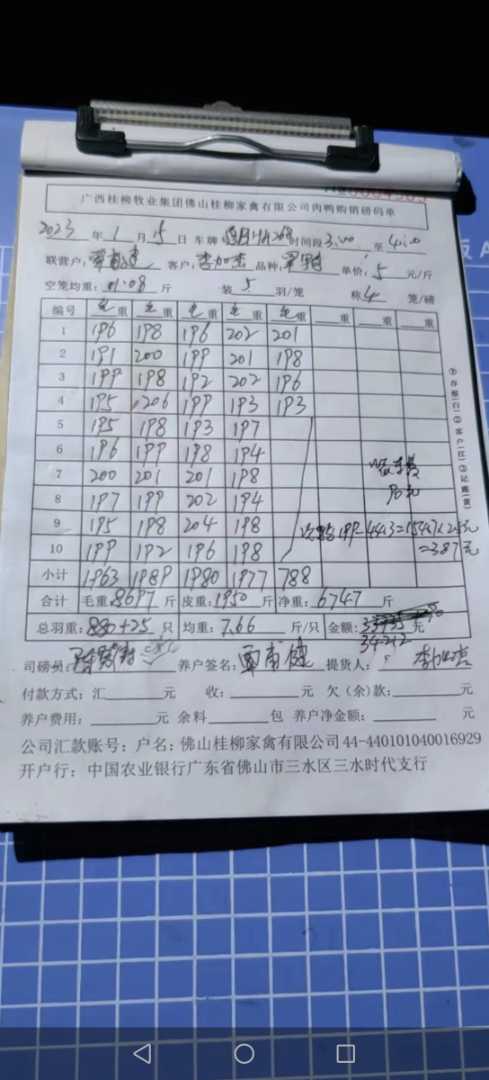 广西桂柳牧业集团佛山桂柳家禽有限公司肉鸭购销磅码单
2023 年 1 月 5 日 车牌 时间段 3:00 至 4:00
联营户: 客户: 李加杰 品种: 单价: 5 元/斤
空笼均重: 斤 装 5 羽/笼 称 4 笼/磅
编号 毛重 毛重 毛重 毛重 毛重 重 重 重
1 196 198 196 202 201
2 191 200 199 201 198
3 199 198 192 202 196
4 195 206 199 193 193
5 195 198 193 197
6 196 199 198 194
7 200 201 201 198
8 197 199 202 194
9 195 198 204 198
10 199 192 196 198
=387元
小计 1963 1989 1980 1977 788
合计 毛重: 8697 斤 皮重: 1950 斤 净重: 6747 斤
总羽重: 880+25 只 均重: 7.66 斤/只 金额: 元
34212
司磅员: 养户签名: 覃富健 提货人: 李加杰
付款方式: 汇 元 收: 元 欠(余)款: 元
养户费用: 元 余料 包 养户净金额: 元
公司汇款账号: 户名: 佛山桂柳家禽有限公司 44-440101040016929
开户行: 中国农业银行广东省佛山市三水区三水时代支行